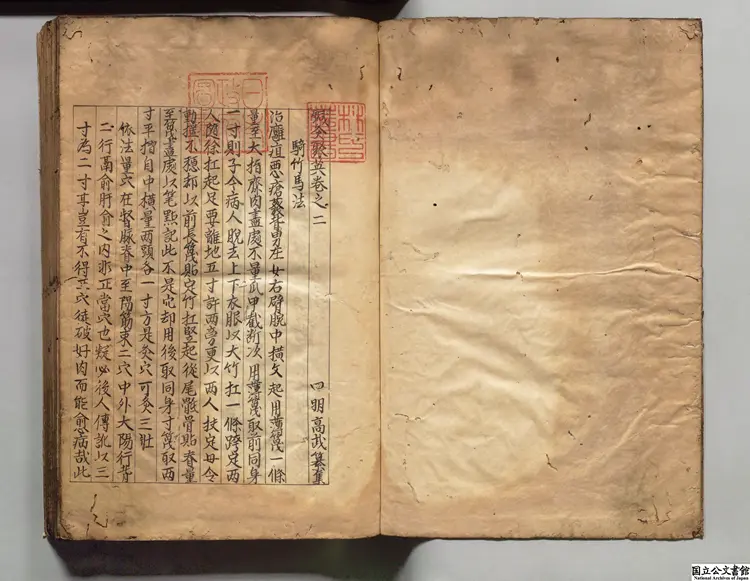 鍼灸聚英卷之二
四明高武纂集
騎竹馬法
治癰疽惡瘡發背男左女右臂腕中橫文起用薄篾一條
量至大指齊肉盡處不量爪甲截斷次用薄篾取前同身
一寸則子令病人脫去上下衣服以大竹扛一條跨定兩
人隨徐扛起足要離地五寸許兩旁更以兩人扶定毋令
動搖不穩却以前長篾貼定竹扛豎起從尾骶骨貼脊量
至篾盡處以笔點記此不是穴却用後取同身寸篾取兩
寸平摺自中橫量兩頭各一寸方是灸穴可灸三壯
依法量穴在督脉脊中至陽筋束二穴中外大陽行背
二行鬲俞肝俞之內非正當穴也疑必後人傳訛以三
寸為二寸耳豈有不得正穴徒破好肉而能愈病哉此
国立公文書館
National Archives of Japan